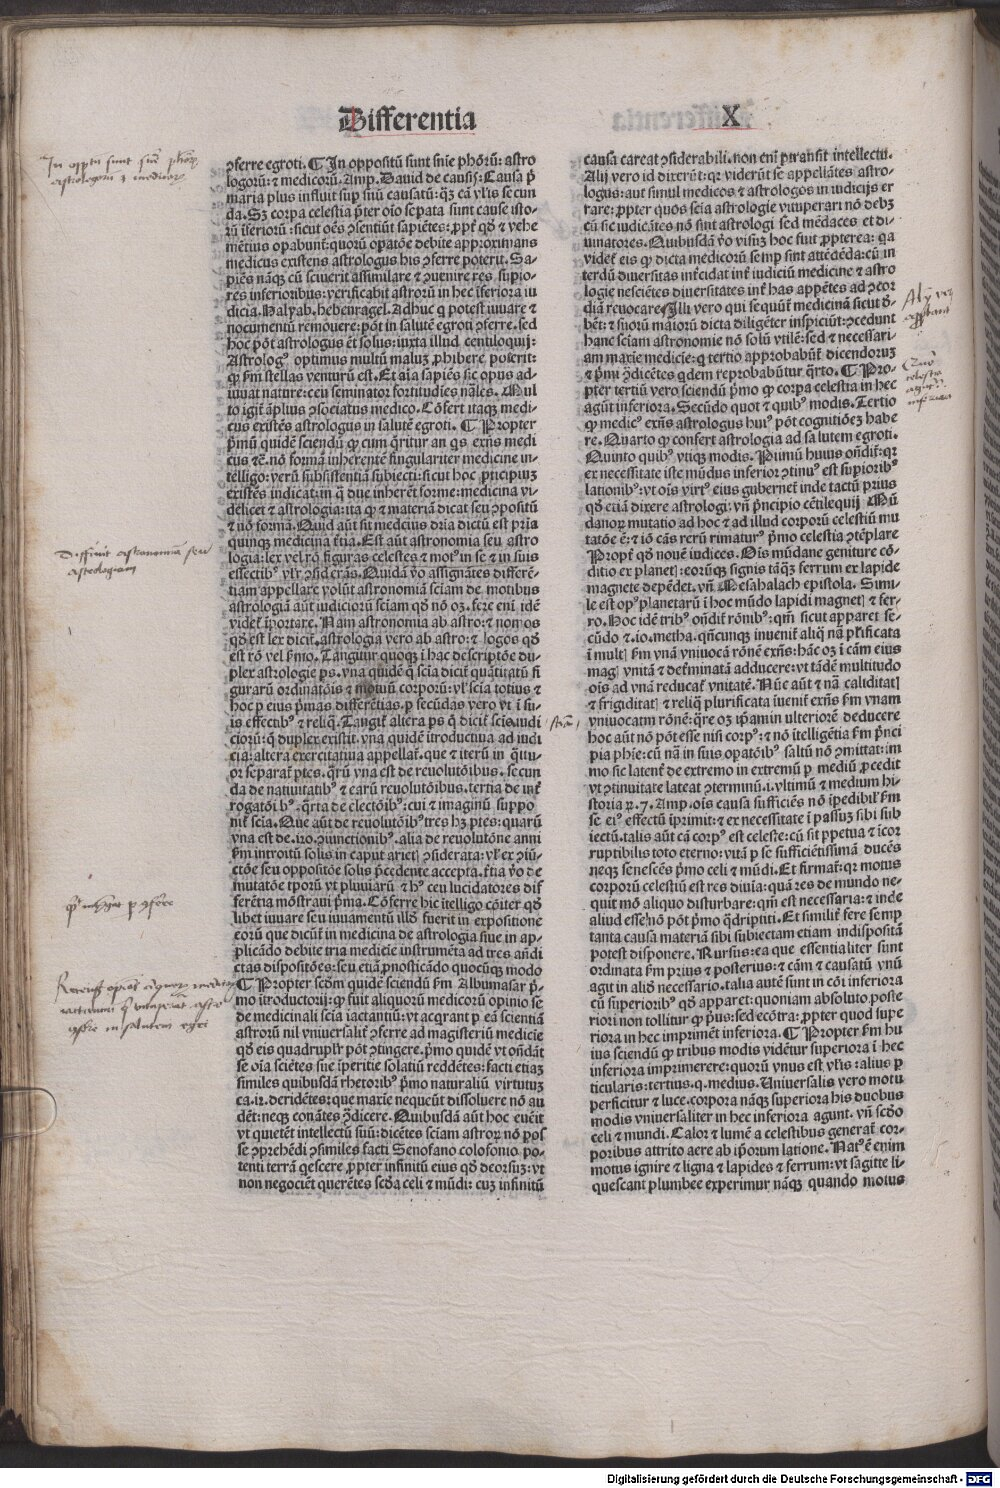 Differentia
X
ꝯferre egroti. ¶ In oppositũ sunt snĩe phõrũ: astro
logorũ: ⁊ medicorũ. Amp. Dauid de causis: Causa p̃
maria plus influit sup̃ suũ causatũ: q̃ȝ cã vl̃is secun
da. Sȝ corpa celestia p̃ter oĩo sepata sunt cause isto⸗
rũ ĩferiorũ: sicut oẽs ꝯsentiũt sapiẽtes: ꝓpt̃ qđ ⁊ vehe
mẽtius opabunt̃: quorũ opatõe debite approximans
medicus existens astrologus his ꝯferre poterit. Sa⸗
piẽs nãqꝫ cũ sciuerit assimilare ⁊ ꝯuenire res supio⸗
res inferioribus: verificabit̃ astrorũ in hec ĩferiora iu
dicia. Halyab. hebenragel. Adhuc q̃ potest iuuare ⁊
nocumentũ remouere: põt in salutẽ egroti ꝯferre. sed
hoc põt astrologus et solus: iuxta illud centiloquij:
Astrologꝰ optimus multũ maluȝ ꝓhibere poterit:
ꝙ fm̃ stellas venturũ est. Et aĩa sapiẽs sic opus ad⸗
iuuat nature: ceu seminator fortitudĩes nãles. Mul
to igit̃ ãplius ꝯsociatus medico. Cõfert itaqꝫ medi⸗
cus existẽs astrologus in salutẽ egroti. ¶ Propter
p̃mũ quidẽ sciendũ ꝙ cum q̃ritur an q̃s exñs medi
cus ⁊c̃. nõ formã inherentẽ singulariter medicine in⸗
telligo: verũ subsistentiã subiecti: sicut hoc p̃ncipiuȝ
existẽs indicat: in q̃ due inherẽt forme: medicina vi⸗
delicet ⁊ astrologia: ita ꝙ ⁊ materiã dicat seu ꝯpositũ
⁊ nõ formã. Quid aũt sit medicus dr̃ia dictũ est pr̃ia
quinqꝫ medicina t̃tia. Est aũt astronomia seu astro
logia: lex vel rõ figuras celestes ⁊ motꝰ in se ⁊ in suis
effectibꝰ vl̃r ꝯsiderãs. Quidã ṽo assignãtes differẽ⸗
tiam appellare volũt astronomiã sciam de motibus
astrologiã aũt iudiciorũ sciam qđ nõ oȝ. fere em̃ idẽ
videt̃ ĩportare. Nam astronomia ab astro: ⁊ nomos
qđ est lex dicit̃. astrologia vero ab astro: ⁊ logos qđ
est rõ vel s̃mo. Tangunt̃ quoqꝫ ĩ hac descriptõe du⸗
plex astrologie ps. vna quidẽ q̃ scia dicit̃ quãtitatũ fi
gurarũ ordinatõis ⁊ motuũ corporũ: vl̃ scia totius ⁊
hoc p eius p̃mas differẽtias. p secũdas vero vt ĩ su⸗
is effectibꝰ ⁊ reliq̃. Tangit̃ altera ps q̃ dicit̃ scia iudi
ciorũ: q̃ duplex existit. vna quidẽ ĩtroductiua ad iudi
cia: altera exercitatiua appellat̃. que ⁊ iterũ in q̃ttu⸗
or separat̃ ptes. q̃rũ vna est de reuolutõibus. secun
da de natiuitatibꝰ ⁊ earũ reuolutõibus. tertia de int̃
rogatõibꝰ. q̃rta de electõibꝰ: cui ⁊ imaginũ suppo
nit̃ scia. Que aũt de reuolutõibꝰ tres hȝ ptes: quarũ
vna est de .120. ꝯiunctionibꝰ. alia de reuolutõne anni
fm̃ introitũ solis in caput arietꝭ ꝯsiderata: vl̃ ex ꝯiũ⸗
ctõe seu oppositõe solis p̃cedente accepta. t̃tia ṽo de
mutatõe tp̃orũ vt pluuiarũ ⁊ hꝰ ceu lucidatores dif
ferẽtia mõstraui p̃ma. Cõferre hic ĩtelligo cõiter qđ
libet iuuare seu iuuamentũ illđ fuerit in expositione
eorũ que dicũt̃ in medicina de astrologia siue in ap⸗
plicãdo debite tria medicie instrumẽta ad tres añdi
ctas dispositões: seu etiã ꝓnosticãdo quocũqꝫ modo
¶ Propter scđm quidẽ sciendũ fm̃ Albumasar p̃⸗
mo ĩtroductorij: ꝙ fuit aliquorũ medicorũ opinio se
de medicinali scia iactantiũ: vt acq̃rant p eã scientiã
astrorũ nil vniuersalit̃ ꝯferre ad magisteriũ medicie
qđ eis quadruplr̃ põt ꝯtingere. p̃mo quidẽ vt oñdãt
se oĩa sciẽtes sue ĩperitie solatiũ reddẽtes: facti etiaȝ
similes quibusdã rhetoribꝰ p̃mo naturaliũ virtutuȝ
ca.12. deridẽtes: que maxie nequeũt dissoluere nõ au
dẽt: neqꝫ conãtes ꝯ̃dicere. Quibusdã aũt hoc euẽit
vt quietẽt intellectũ suũ: dicẽtes sciam astroꝝ nõ pos
se ꝯprehẽdi ꝯsimiles facti Senofano colofonio po⸗
tenti terrã q̃escere ꝓpter infinitũ eius qđ deorsuȝ: vt
non negociẽt̃ querẽtes scđa celi ⁊ mũdi: cuȝ infinitũ
causa careat ꝯsiderabili. non em̃ p̃transit̃ intellectu.
Alij vero id dixerũt: qr viderũt se appellãtes astro⸗
logus: aut simul medicos ⁊ astrologos in iudicijs er
rare: ꝓpter quos scia astrologie vituperari nõ debȝ
cũ sic iudicãtes nõ sint astrologi sed mẽdaces et di⸗
uinatores. Quibusdã ṽo visuȝ hoc fuit ꝓpterea: qa
videt̃ eis ꝙ dicta medicorũ semp sint attẽdẽda: cũ in
terdũ diuersitas int̃cidat int̃ iudiciũ medicine ⁊ astro
logie nesciẽtes diuersitates int̃ has appẽtes ad ꝯcor
diã reuocare. Illi vero qui sequũt̃ medicinã sicut đ⸗
bẽt: ⁊ suorũ maiorũ dicta diligẽter inspiciũt: ꝯcedunt
hanc sciam astronomie nõ solũ vtilẽ: sed ⁊ necessari⸗
am maxie medicie: q̃ tertio approbabũt̃ dicendoruȝ
⁊ p̃mi ꝯ̃dicẽtes q̃dem reprobabũtur q̃rto. ¶ Pro⸗
pter tertiũ vero sciendũ p̃mo ꝙ corpa celestia in hec
agũt inferiora. Secũdo quot ⁊ quibꝰ modis. Tertio
ꝙ medicꝰ exñs astrologus huiꝰ põt cognitiõeȝ habe
re. Quarto ꝙ confert astrologia ad salutem egroti.
Quinto quibꝰ vtiqꝫ modis. Primũ huius oñdit̃: qr
ex necessitate iste mũdus inferior ꝯtinuꝰ est supioribꝰ
lationibꝰ: vt oĩs virtꝰ eius gubernet̃ inde tactũ prius
qđ etiã dixere astrologi: vñ p̃ncipio cẽtilequij Mũ
danoꝝ mutatio ad hoc ⁊ ad illud corporũ celestiũ mu
tatõe ẽ: ⁊ iõ cãs rerũ rimaturꝰ p̃mo celestia ꝯtẽplare
Propt̃ qđ nouẽ iudices. Oĩs mũdane geniture cõ⸗
ditio ex planetꝭ: eorũqꝫ signis tãq̃ȝ ferrum ex lapide
magnete depẽdet. vñ Mesahalach epistola. Simi⸗
le est opꝰ planetarũ ĩ hoc mũdo lapidi magnetꝭ ⁊ fer⸗
ro. Hoc idẽ tribꝰ oñdit̃ rõnibꝰ: qm̃ sicut apparet se⸗
cũdo ⁊ .10. metha. qñcunqꝫ inuenit̃ aliq̃ nã p̃lrificata
ĩ multꝭ fm̃ vnã vniuocã rõnẽ exñs: hãc oȝ ĩ cãm eius
magꝭ vnitã ⁊ det̃minatã adducere: vt tãdẽ multitudo
oĩs ad vnã reducat̃ vnitatẽ. Nũc aũt ⁊ nã caliditatꝭ
⁊ frigiditatꝭ ⁊ reliq̃ plurificata ĩuenit̃ exñs fm̃ vnam
vniuocatm̃ rõnẽ: q̃re oȝ ip̃am in ulteriorẽ deducere
hoc aũt nõ põt esse nisi corpꝰ: ⁊ nõ ĩtelligẽtia fm̃ p̃nci
pia phie: cũ nã in suis opatõibꝰ saltũ nõ ꝯmittat: im
mo sic latent̃ de extremo in extremũ p mediũ ꝓcedit
vt ꝯtinuitate lateat ꝯterminũ .i. vltimũ ⁊ medium hi⸗
storia ꝝ. 7. Amp. oĩs causa sufficiẽs nõ ĩpedibil̃ fm̃
se eiꝰ effectũ ĩprimit: ⁊ ex necessitate ĩ passuȝ sibi sub
iectũ. talis aũt cã corpꝰ est celeste: cũ sit ppetua ⁊ ĩcor
ruptibilis toto eterno: vitã p se sufficiẽtissimã ducẽs
neqꝫ senescẽs p̃mo celi ⁊ mũdi. Et firmat̃: qr motus
corporũ celestiũ est res diuia: quã res de mundo ne⸗
quit mõ aliquo disturbare: qm̃ est necessaria: ⁊ inde
aliud esse nõ põt p̃mo q̃driptiti. Et similit̃ fere semp
tanta causa materiã sibi subiectam etiam indispositã
potest disponere. Rursus: ea que essentialiter sunt
ordinata fm̃ prius ⁊ posterius: ⁊ cãm ⁊ causatũ vnũ
agit in aliđ necessario. talia autẽ sunt in cõi inferiora
cũ superioribꝰ qđ apparet: quoniam absoluto poste
riori non tollitur ꝙ p̃us: sed ecõtra: ꝓpter quod supe
riora in hec imprimẽt inferiora. ¶ Propter fm̃ hu
ius sciendũ ꝙ tribus modis vidẽtur superiora ĩ hec
inferiora imprimerere: quorũ vnus est vl̃is: alius p
ticularis: tertius .q. medius. Uniuersalis vero motu
perficitur ⁊ luce. corpora nãqꝫ superiora his duobus
modis vniuersaliter in hec inferiora agunt. vñ scđo
celi ⁊ mundi. Calor ⁊ lumẽ a celestibus generat̃ cor⸗
poribus attrito aere ab ip̃orum latione. Natꝰ ẽ enim
motus ignire ⁊ ligna ⁊ lapides ⁊ ferrum: vt sagitte li⸗
quescant plumbee experimur nãqꝫ quando motus
Digitalisierung gefördert durch die Deutsche Forschungsgemeinschaft - DFG